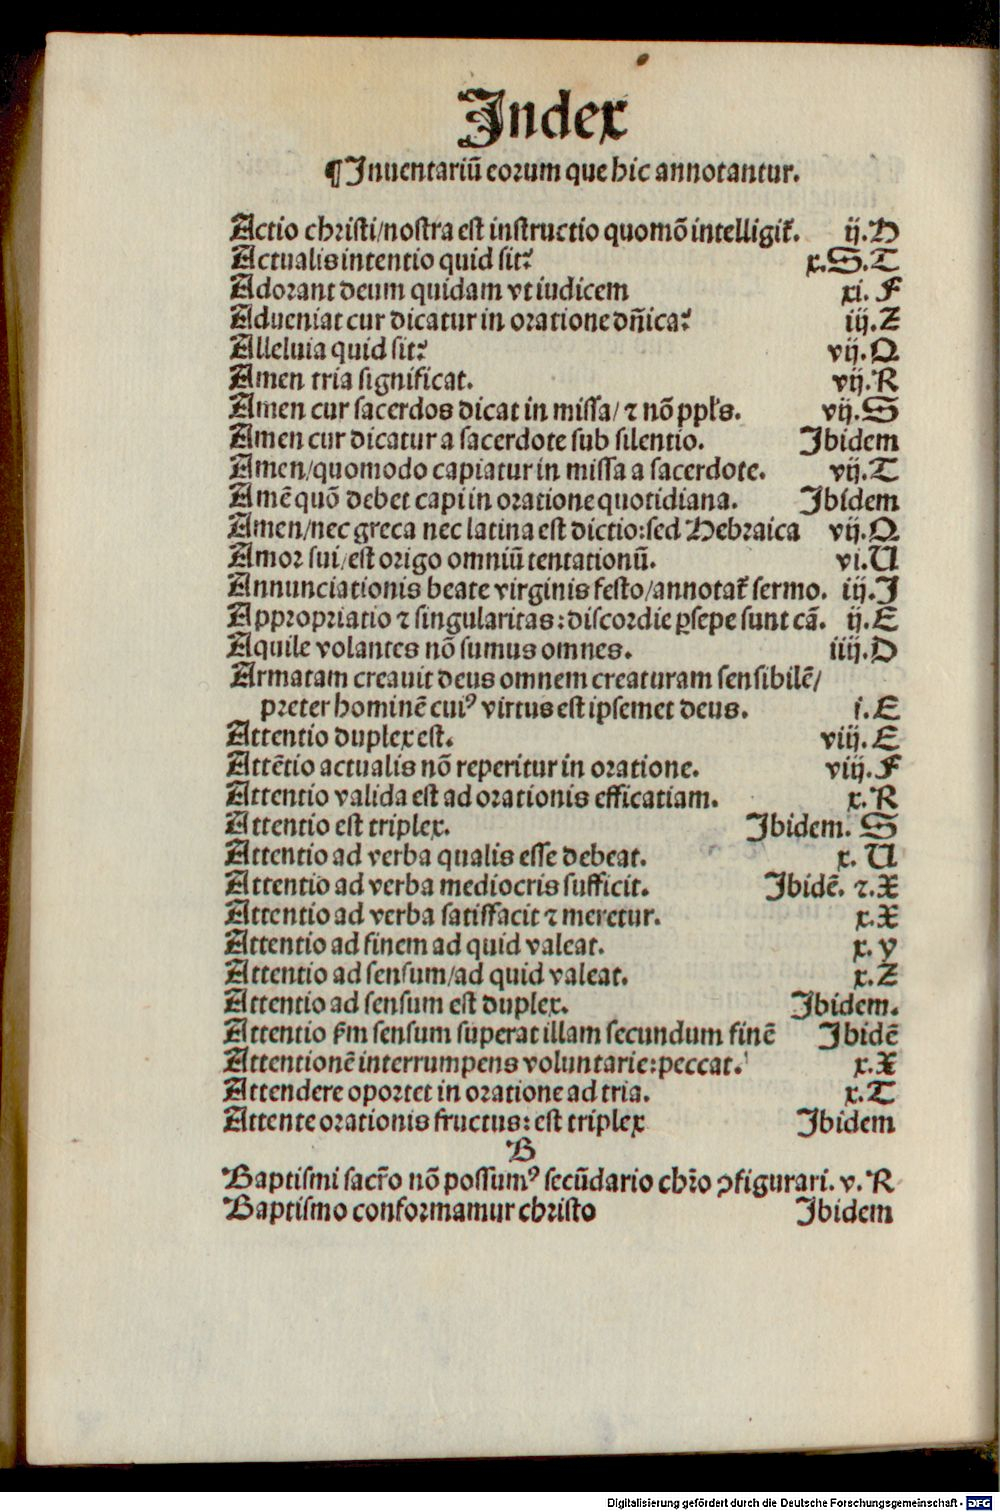 Index
¶Inuentariũ eorum que hic annotantur.
Actio christi/nostra est instructio quomõ intelligit᷑. ij.H
Actualis intentio quid sit? x.S.T
Adorant deum quidam vt iudicem xi. F
Adueniat cur dicatur in oratione dñica? iij.Z
Alleluia quid sit? vij.Q
Amen tria significat. vij.R
Amen cur sacerdos dicat in missa/ ⁊ nõ ppl's. vij.S
Amen cur dicatur a sacerdote sub silentio. Ibidem
Amen/quomodo capiatur in missa a sacerdote. vij.T
Amẽ quõ debet capi in oratione quotidiana. Ibidem
Amen/nec greca nec latina est dictio:sed Hebraica vij.Q
Amor sui/est origo omniũ tentationũ. vi.U
Annunciationis beate virginis festo/annotat᷑ sermo. iij.I
Appropriatio ⁊ singularitas:discordie p̱sepe sunt cã. ij.E
Aquile volantes nõ sumus omnes. iiij.D
Armatam creauit deus omnem creaturam sensibilẽ/
preter hominẽ cuiꝰ virtus est ipsemet deus. i.E
Attentio duplex est. viij.E
Attẽtio actualis nõ reperitur in oratione. viij.F
Attentio valida est ad orationis efficatiam. x.R
Attentio est triplex. Ibidem. S
Attentio ad verba qualis esse debeat. x. U
Attentio ad verba mediocris sufficit. Ibidẽ. ⁊.X
Attentio ad verba satisfacit ⁊ meretur. x.X
Attentio ad finem ad quid valeat. x.y
Attentio ad sensum/ad quid valeat. x.Z
Attentio ad sensum est duplex. Ibidem.
Attentio ẜm sensum superat illam secundum finẽ Ibidẽ
Attentionẽ interrumpens voluntarie:peccat. x.X
Attendere oportet in oratione ad tria. x.T
Attente orationis fructus: est triplex Ibidem
B
Baptismi sacr̃o nõ possumꝰ secũdario chr̃o ꝯfigurari. v.R
Baptismo conformamur christo Ibidem
Digitalisierung gefördert durch die Deutsche Forschungsgemeinschaft - DFG